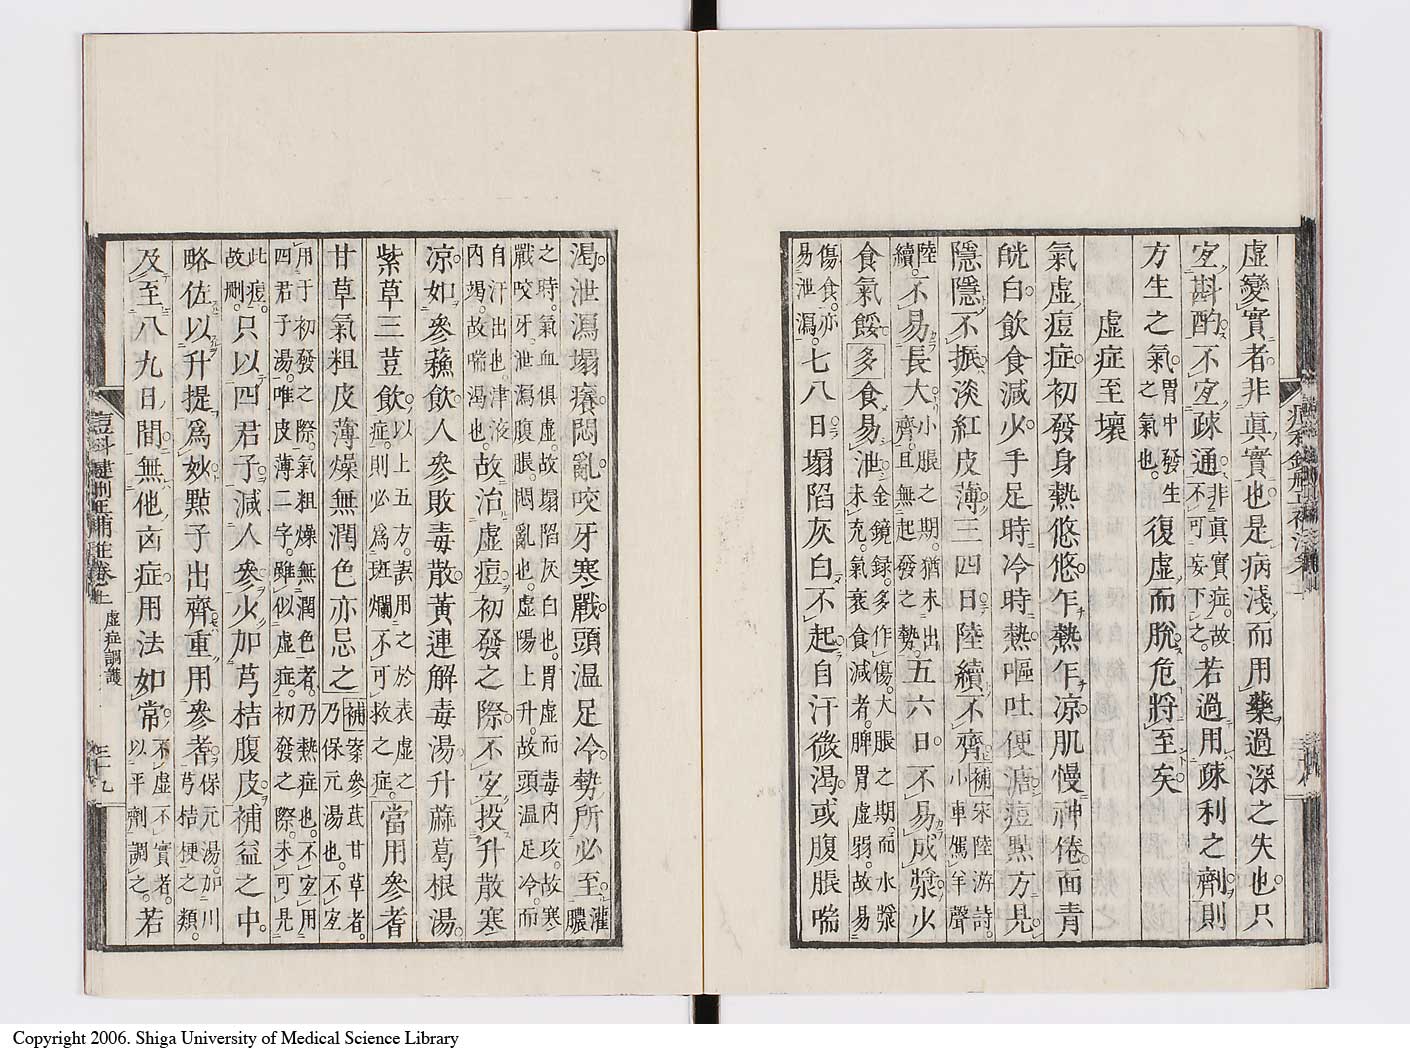 虛變實者非眞實也是病淺而用藥過深之失也只
宜斟酌不宜疎通非眞實症故不可妄下之若過用疎利之劑則
方生之氣胃中發生之氣也復虛而脫危將至矣
虛症至壞
氣虛痘症初發身熱悠悠乍熱乍凉肌慢神倦面青
㿠白飮食減少手足時冷時熱嘔吐便溏痘㸃方見
隱隱不振淡紅皮薄三四日陸續不齊補宋陸游詩小車駕羊聲
陸續不易長大小脹之期猶未出齊且無起發之勢五六日不易成漿火
食氣餒多食易泄金鏡録多作傷大脹之期而水漿未充氣衰食減者脾胃虛弱故易
傷食亦易泄瀉七八日塌陷灰白不起自汗微渴或腹脹喘
渴泄瀉塌癢悶亂咬牙寒戰頭溫足冷勢所必至灌膿
之時氣血俱虛故塌陷灰白也胃虛而毒内攻故寒戰咬牙泄瀉腹脹悶亂也虛陽上升故頭溫足冷而
自汗出也津液内竭故喘渴也故治虛痘初發之際不宜投升散寒
凉如參蘇飮人參敗毒散黃連解毒湯升蔴葛根湯
紫草三荳飮以上五方誤用之於表虛之症則必爲斑爛不可救之症當用參耆
甘草氣粗皮薄燥無潤色亦忌之補案參茋甘草者乃保元湯也不宜
用于初發之際氣粗燥無潤色者乃熱症也不宜用四君子湯唯皮薄二字雖似虛症初發之際未可見
此痘故刪只以四君子減人參少加芎桔腹皮補益之中
略佐以升提爲妙㸃子出齊重用參耆保元湯加川芎桔梗之類
及至八九日間無他凶症用法如常不虛不實者以平劑調之若
虛症調護
三十九